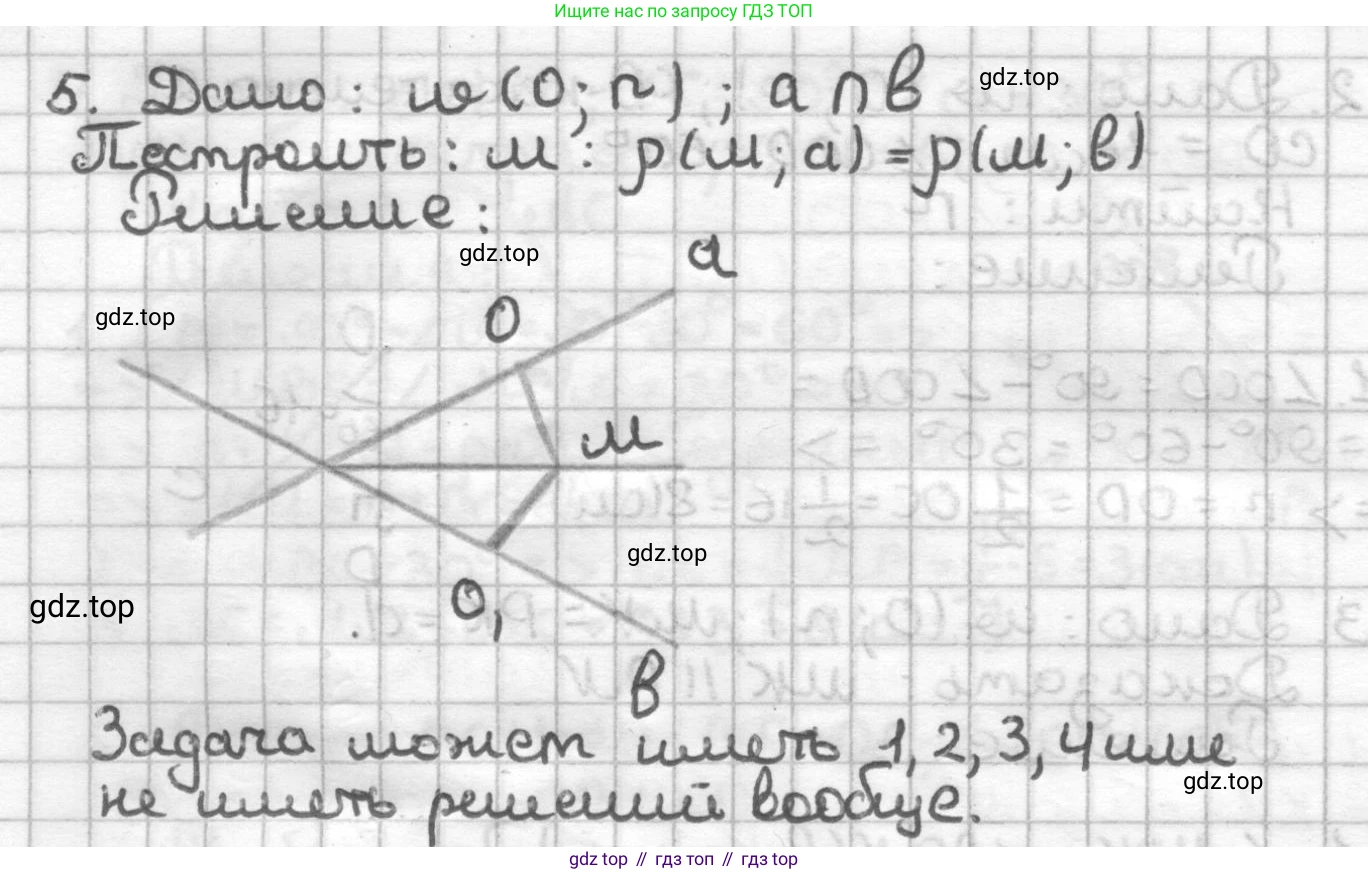 Ищите нас по запросу ГДЗ ТОП
5. Дано: w(O; r); a ∩ в
gdz.top
Построить: м: ρ(м; a) = ρ(м; в)
Решение:
gdz.top
a
gdz.top
O
м
gdz.top
gdz.top
O₁
в
Задача может иметь 1, 2, 3, 4 или
gdz.top
не иметь решений вообще.
gdz top // гдз топ // гдз top